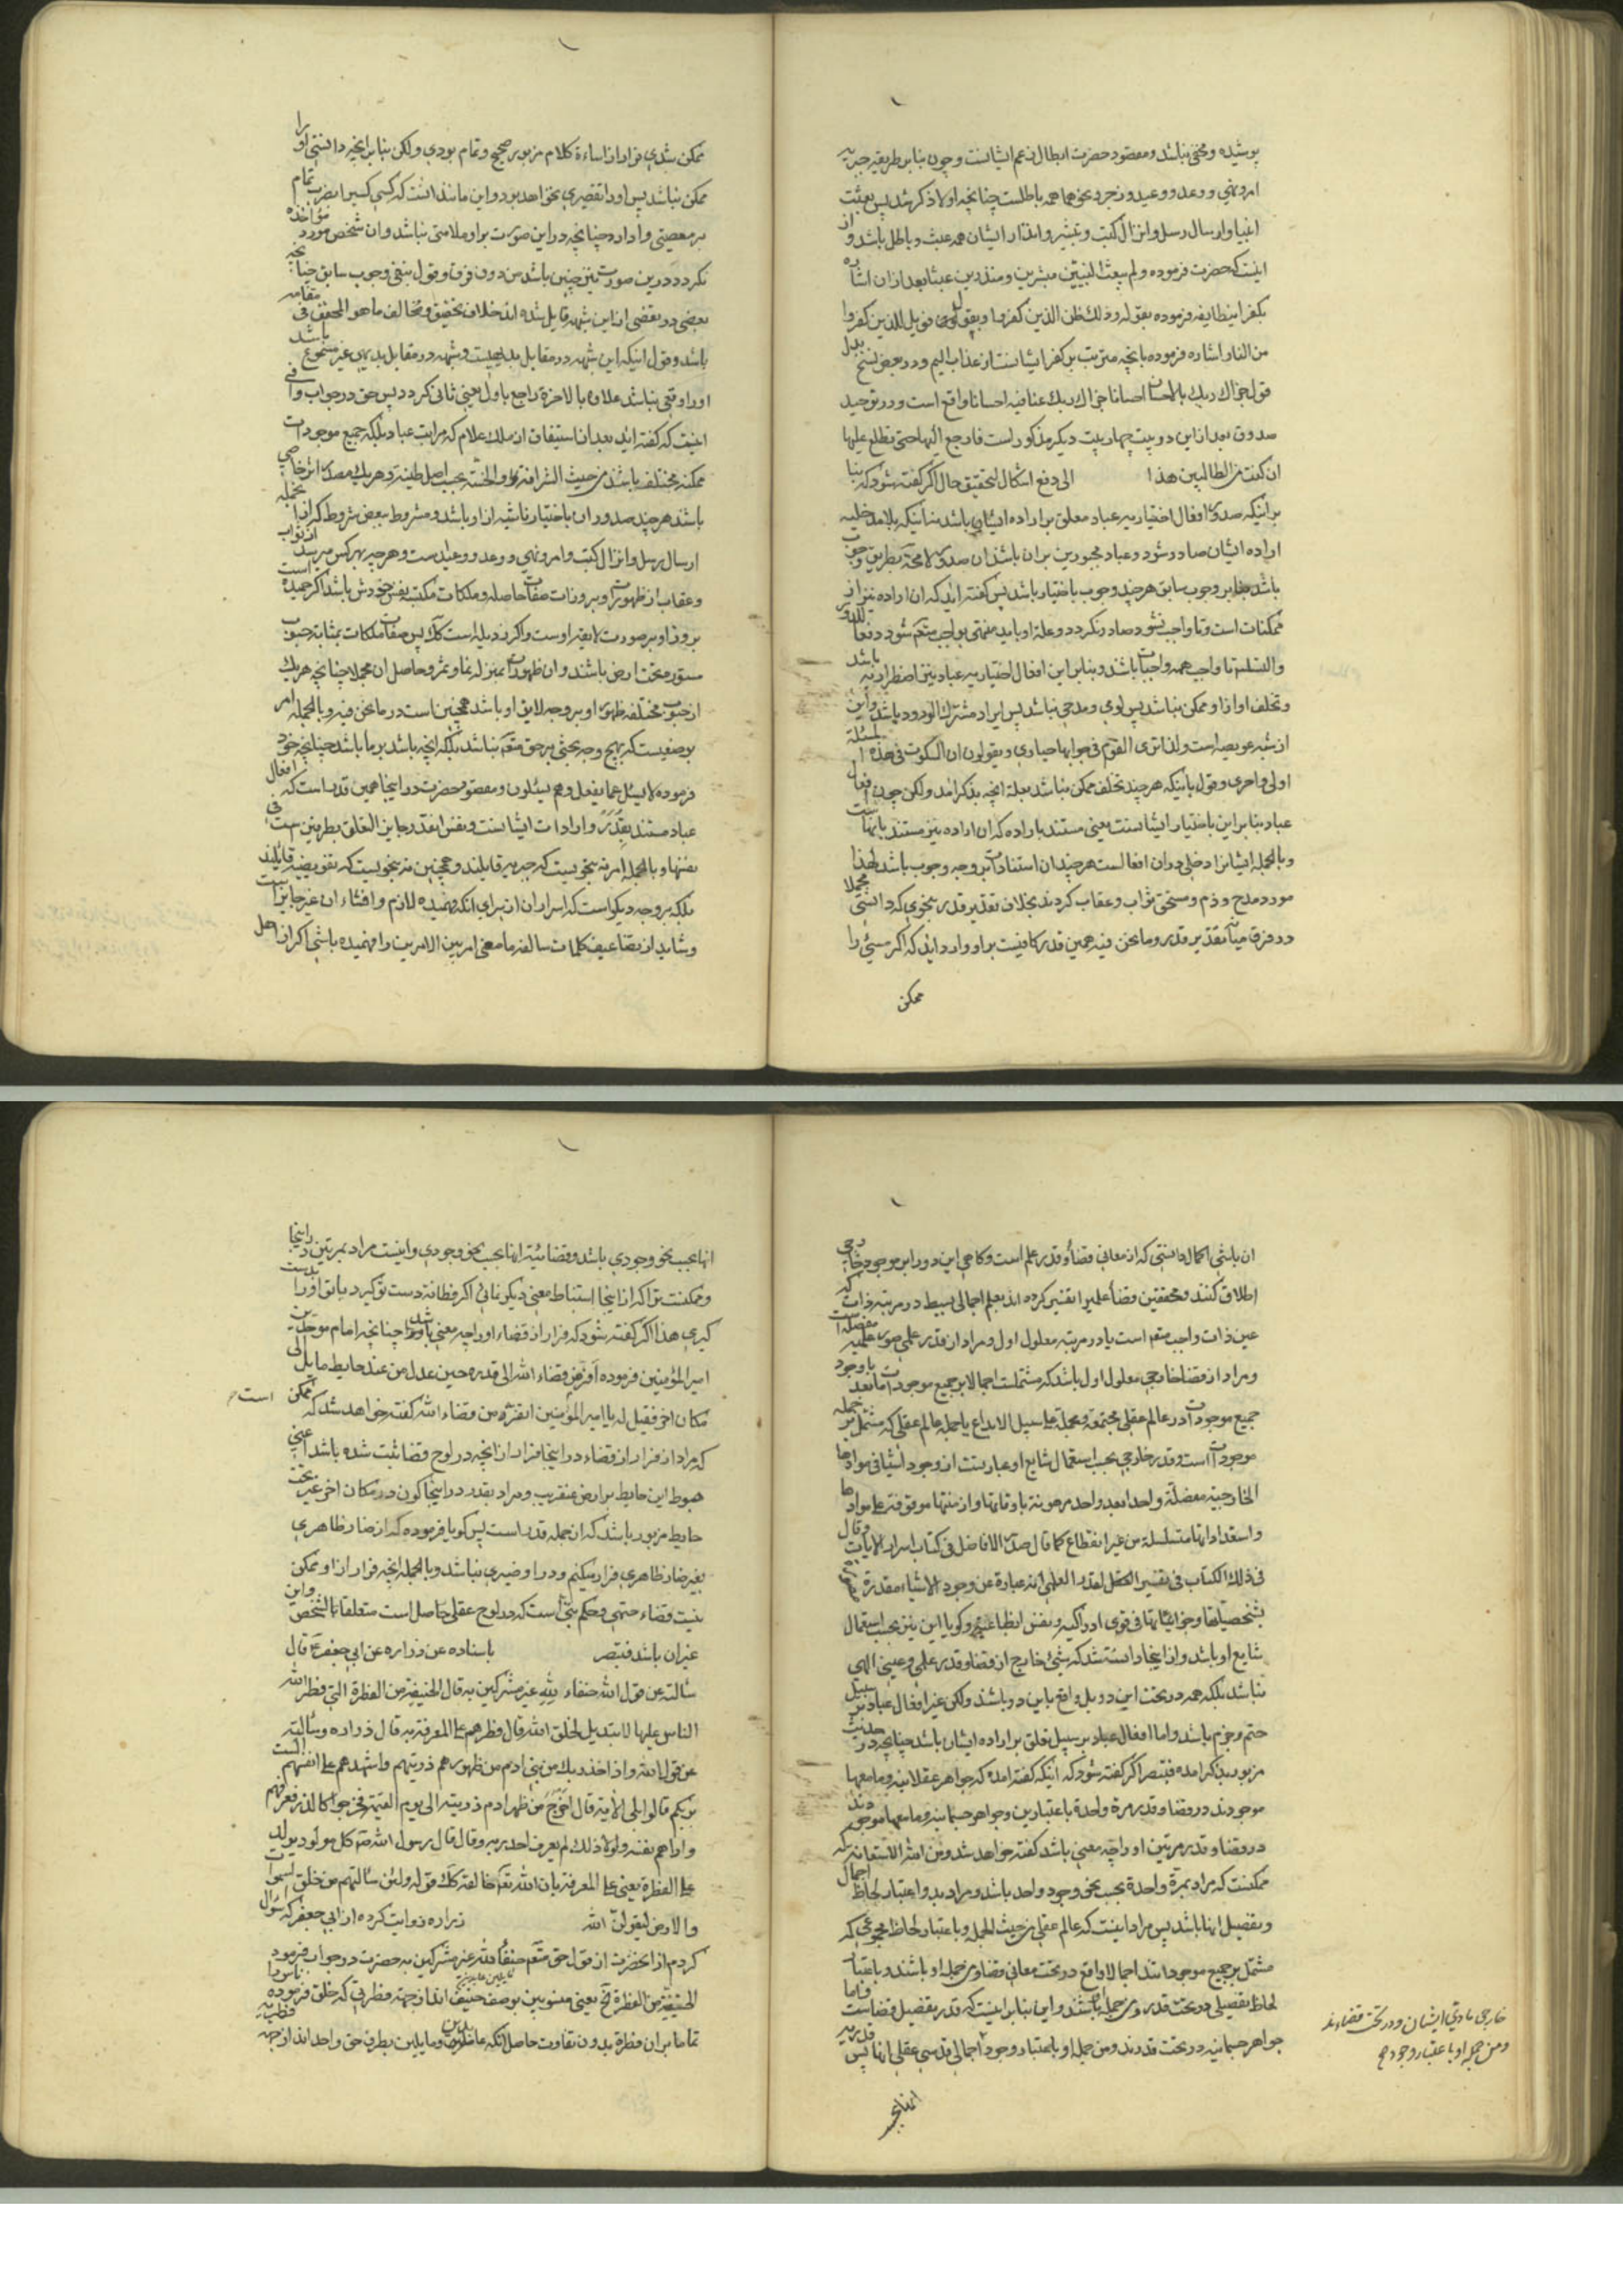 پوشیده و مخفی نباشد و مقصود حضرت ابطال زعم ایشانست و چون بنا بر طریقه جبریه
امر و نهی و وعد و وعید و زجر و نحو هما همه باطلست چنانچه اولا ذکر شد پس بعثت
انبیا و ارسال رسل و انزال کتب و تبشیر و انذار ایشان همه عبث و باطل باشد و از
اینست که حضرت فرموده و لم یبعث النبیین مبشرین و منذرین عبثا بعد از ان اشاره
بکفر اینطایفه فرموده بقوله و ذلک ظن الذین کفروا و بقوله فویل للذین کفروا
من النار اشاره فرموده بانچه مترتب بر کفر ایشانست از عذاب الیم و در بعض نسخ بدل
قول جزاک ربک بالاحسان احسانا جزاک ربک عنا فیه احسانا واقع است و در توحید
صدوق بعد از این دو بیت چهار بیت دیگر مذکور است فارجع الیها حتی تطلع علیها
ان کنت من الطالبین هذا الی دفع اشکال لتحقیق حال اگر گفته شود که بنا
بر اینکه صدور افعال اختیاریه عباد معلق بر اراده ایشان باشد نه اینکه بلا مدخلیه
اراده ایشان صادر شود و عباد مجبور بر ان باشند ان صدور لا محة بطریق وجوب
باشد بنا بر وجوب سابق هر چند وجوب باختیار باشد پس گفته اید که ان اراده نیز از
ممکنات است و تا واجب نشود صادر نگردد و علة او باید منتهی بواجب متعم شود دفعا للدور
و التسلسل تا واجب همه واجبات باشد و بنا بر این افعال اختیاریه عباد نیز اضطراریه باشد
و تخلف او از او ممکن نباشد پس لومی و مدحی نباشد پس ایراد مشترک الورود باشد و این
از شبه عویصه است و لذا تری القوم فی جوابها حیاری و یقولون ان السکوت فی هذه المسئلة
اولی و احری و قول باینکه هر چند تخلف ممکن نباشد بعلة انچه بذکر امد و لکن چون افعال
عباد بنا بر این باختیار ایشانست یعنی مستند باراده که ان اراده نیز مستند بانهاست
و بالجمله ایشانرا دخلی در ان افعالست هر چند ان استنادات بر وجه وجوب باشد لهذا
مورد مدح و ذم و مستحق ثواب و عقاب گردند بخلاف تقدیر قدر بنحوی که دانستی مجملا
در فرق میانه تقدیر قدر و ما نحن فیه همین قدر کافیست بر او وارد اید که اگر مسیئی را
ممکن
ممکن شدی فرار از اساءة کلام مزبور صحیح و تمام بودی و لکن بنا بر انچه دانستی او را
ممکن نباشد پس او را تقصیری نخواهد بود و این مانند انست که کسی کسیرا بضرب تمام
بر معصیتی وا دارد چنانچه در این صورت بر او ملامتی نباشد و ان شخص مورد مؤاخذه
نگردد در این صورت نیز چنین باشد من دون فرق و قول بنفی وجوب سابق چنانچه
بعضی در تفصی از این شبهه قایل شده اند خلاف تحقیق و مخالف ما هو المحقق فی مقامه
باشد و قول اینکه این شبهه در مقابل بدیهیست و شبهه در مقابل بدیهی غیر مسموع باشد
او را وقعی نباشد علاوه بالاخرة راجع باول یعنی ثانی گردد پس حق در جواب وافی
اینست که گفته اید بعد از استیفاق از ملک علام که مراتب عباد بلکه جمیع موجودات
ممکنه مختلفه باشند من حیث الشرافة و الخسة بحسب اصل طینة و هر یک مصدر اثر خاصی
باشد هر چند صدور ان باختیار ناشیه از او باشد و مشروط ببعض شروط که از انجمله
ارسال رسل و انزال کتب و امر و نهی و وعد و وعید است و هر چه بهر کس میرسد از ثواب
و عقاب از ظهورات و بروزات صفات حاصله و ملکات مکتسبه نفس خودش باشد اگر حمیده است
بروز او بر صورت لایقه اوست و اگر رذیله است کک پس صفات و ملکات بمثابة حبوب
مستوره تحت ارض باشند و ان ظهورات بمنزله نما و ثمر و حاصل ان مجملا چنانچه هر یک
از حبوب مختلفه ظهور او بر وجه لایق او باشد همچنین است در ما نحن فیه و بالجمله امر
بر وضعیست که بهیچ وجه بحثی بر حق متعم نباشد بلکه انچه باشد بر ما باشد چنانچه خود
فرموده لا یسئل عما یفعل و هم یسئلون و مقصود حضرت در اینجا همین قدر است که افعال
عباد مستند بقدر و ارادات ایشانست و نفس انقدر جاین التعلق بطرفین است فی
نفسها و بالجمله امر نه بنحویست که جبریه قایلند و همچنین نه بنحویست که تفویضیه قایلند
بلکه بر وجه دیگر است که اسرار ان از برای انکه فهمیده لازم و افشاء ان غیر جایز است
و شاید از تضاعیف کلمات سالفه ما معنی امر بین الامرین را فهمیده باشی اگر از اهل
ان باشی اکمال دانستی که از معانی قضا و قدر علم است و کاهی این دو را بر موجود خارجی
اطلاق کنند و محققین قضاء علمیرا تفسیر کرده اند بعلم اجمالی بسیط در مرتبه ذات که
عین ذات واجب متعم است یا در مرتبه معلول اول و مراد از قدر علمی صور علمیه مفصله است
و مراد از قضا خارجی معلول اول باشد که مشتملست اجمالا بر جمیع موجودات ما بعد یا وجود
جمیع موجودات در عالم عقلی مجتمعة و مجملة علی سبیل الابداع یا جمله عالم عقلی که مشتمل بر جمله
موجودات است و قدر خارجی بحسب استعمال شایع او عبارتست از وجود اشیا فی موادها
الخارجیة مفصلة واحدا بعد واحد مرهونة باوقاتها و ازمنتها موقوفة علی موادها
و استعداداتها متسلسلة من غیر انقطاع کما قال صدر الافاضل فی کتاب اسرار الایات و قال
فی ذلک الکتاب فی تفسیر القدر العلمی انه عبارة عن وجود الاشیاء مقدرة
بتشخصیاتها و جزئیاتها فی قوی ادراکیه و نفس انطباعیه و گویا این نیز بحسب استعمال
شایع او باشد و از اینجا دانسته شد که شیئ خارج از قضا و قدر علمی و عینی الهی
نباشد بلکه همه در تحت این دو بل واقع باین دو باشند و لکن غیر افعال عباد بر سبیل
حتم و جزم باشد و اما افعال عباد بر سبیل تعلق بر اراده ایشان باشد چنانچه در حدیث
مزبور بذکر امده فتبصر اگر گفته شود که اینکه گفته امده که جواهر عقلانیه و ما معها
موجودند در قضا و قدر مرة واحدة باعتبارین و جواهر جسمانیه و ما معها موجودند
در قضا و قدر مرتین او را چه معنی باشد گفته خواهد شد و من الله الاستعانة که
ممکنست که مراد بمرة واحدة بحسب نحو وجود واحد باشد و مراد بدو اعتبار لحاظ اجمال
و تفصیل انها باشد پس مراد اینست که عالم عقلی من حیث الجمله و باعتبار لحاظ مجموعی که
مشتمل بر جمیع موجوداتند اجمالا واقع در تحت معانی قضا و من جمله او باشند و باعتبار
لحاظ تفصیلی در تحت قدر و من جمله او باشند و این بنا بر اینست که قدر تفصیل قضاست و اما
جواهر جسمانیه در تحت قدرند و من جمله او باعتبار وجود اجمالی قدسی عقلی انها پس
خارجی مادی ایشان و در تحت قضاءند
و من جمله او باعتبار وجود
انها بحسب
انها بحسب نحو وجودی باشد و قضائیة انها بحسب نحو وجودی و اینست مراد بمرتین در اینجا
و ممکنست ترا که از اینجا استنباط معنی دیگر نمائی اگر فطانة دست تو گیرد یا توفیق او را بدست
گیری هذا اگر گفته شود که فرار از قضاء او را چه معنی باشد چنانچه امام موحدین
امیر المؤمنین فرموده افر من قضاء الله الی قدره حین عدل من عند حایط مایل الی
مکان اخر فقیل له یا امیر المؤمنین اتفر من قضاء الله گفته خواهد شد که ممکن است
که مراد از فرار از قضاء در اینجا فرار از انچه در لوح قضا ثبت شده باشد اعنی
هبوط این حایط بر ارض عنقریب و مراد بقدر در اینجا کون در مکان اخر غیر تحت
حایط مزبور باشد که ان جمله قدر است پس گویا فرموده که از ضار ظاهری
بغیر ضار ظاهری فرار میکنم و در او ضیری نباشد و بالجمله انچه فرار از او ممکن
نیست قضاء حتمی و حکم بتی است که در لوح عقلی حاصل است متعلقا بالشخص و این
غیر ان باشد فتبصر باسناده عن زراره عن ابی جعفر ع قال
سألته عن قول الله حنفاء لله غیر مشرکین به قال الحنیفیة من الفطرة التی فطر الله
الناس علیها لا تبدیل لخلق الله قال فطرهم علی المعرفة به قال زراره و سألته
عن قول الله و اذ اخذ ربک من بنی ادم من ظهورهم ذریتهم و اشهدهم علی انفسهم الست
بربکم قالوا بلی الایة قال اخرج من ظهر ادم ذریته الی یوم القیمة فخرجوا کالذر فعرفهم
و اراهم نفسه و لولا ذلک لم یعرف احد ربه و قال قال رسول الله صم کل مولود یولد
علی الفطرة یعنی علی المعرفة بان الله تعم خالقه کک قوله و لئن سألتهم من خلق السموات
و الارض لیقولن الله زراره روایت کرده از ابی جعفر که سؤال
کردم از انحضرت از قول حق متعم حنفاء لله غیر مشرکین به حضرت در جواب فرمود
الحنیفیة من الفطرة الخ یعنی منسوبین بوصف حنیف اند از جهة فطرتی که خلق فرموده ناس را
تماما بر ان فطرة بدون تفاوت حاصل انکه و مایلین بطرف حق واحد اند از جهة فطریه